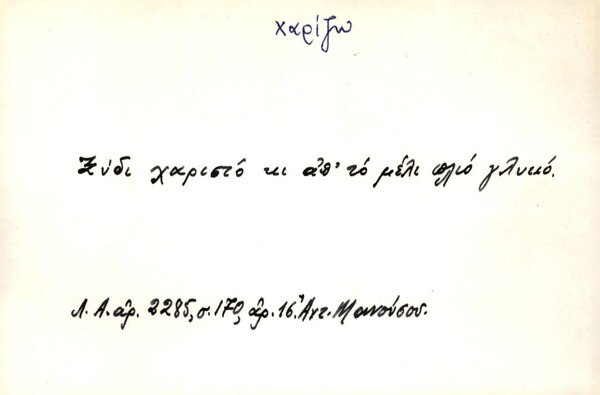 χαρίζω
Ξύδι χαριστό κι ἀπ' τό μέλι πλιό γλυκό.
Λ. Α. ἀρ. 2285, σ. 170, ἀρ. 16, Ἀντ. Μανούσου.